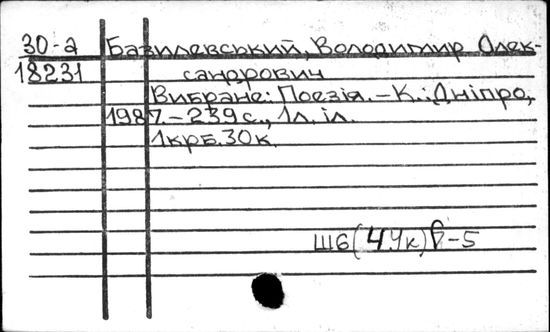 30-а Базилевський, Володимир Олек-
18231 сандрович
Вибране: Поезія. – К.: Дніпро,
1987. – 239 с., 1 л. іл.
1 крб. 30 к.
Ш6(4Ук)